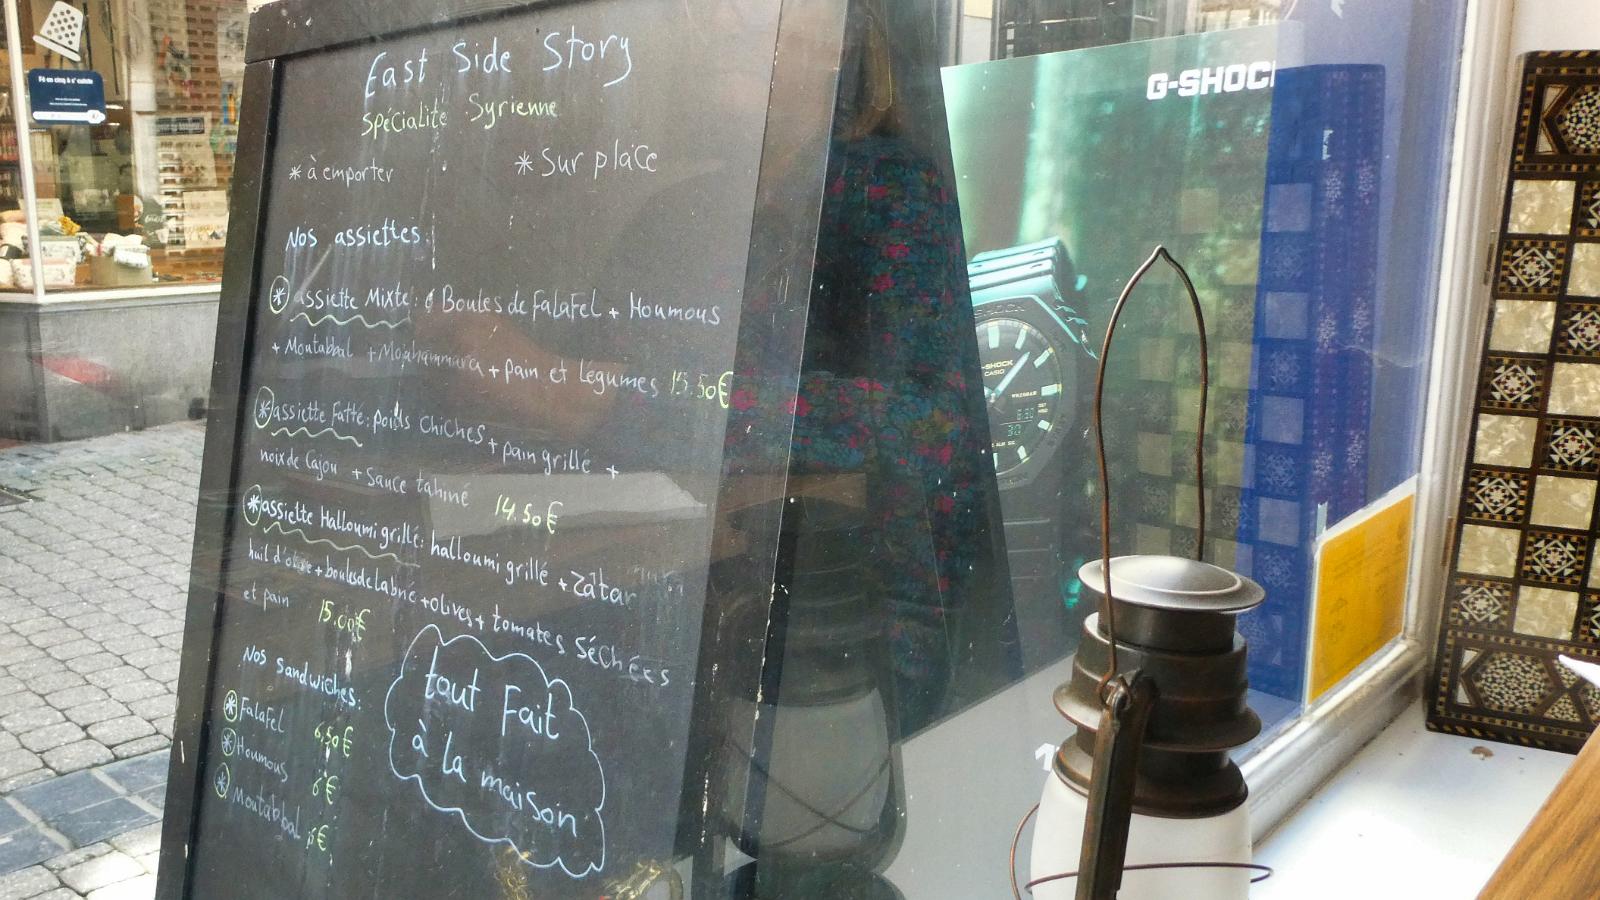 East Side Story
Spécialité Syrienne
* à emporter * Sur place
Nos assiettes:
* assiette Mixte: 6 Boules de FalaFel + Houmous
+ Moutabbal + Mouhammara + pain et Légumes 15.50€
* assiette Fatté: poids chiches + pain grillé +
noix de Cajou + Sauce tahiné 14.50€
* assiette Halloumi grillé: halloumi grillé + Zâtar
huil d'olive + boules de Labné + olives + tomates Séchées
et pain 15.00€
Nos Sandwiches:
* FalaFel 6,50€
* Houmous 6€
* Moutabbal 6€
tout Fait
à La maison
G-SHOC
G-SHOCK
CASIO